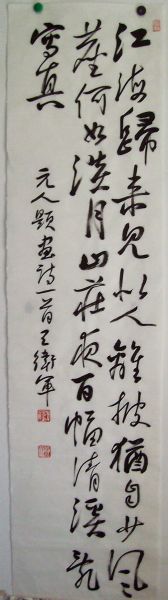 江海歸来見似人離披猶自少風
塵何如淡月山莊夜百幅清溪亂
寫真
元人題畫詩一首王衛軍